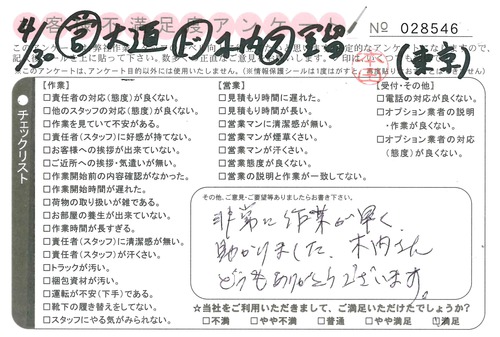 お客様不満足度アンケート
No 028546
4/30 営 大道 木内 (東京)
【作業】
□責任者の対応(態度)が良くない。
□他のスタッフの対応(態度)が良くない。
□作業を見ていて不安がある。
□責任者(スタッフ)に好感が持てない。
□お客様への挨拶が出来ていない。
□ご近所への挨拶・気遣いが無い。
□作業開始前の内容確認がなかった。
□作業開始時間が遅れた。
□荷物の取り扱いが雑である。
□お部屋の養生が出来ていない。
□作業時間が長すぎる。
□責任者(スタッフ)に清潔感が無い。
□責任者(スタッフ)が汗くさい。
□トラックが汚い。
□梱包資材が汚い。
□運転が不安(下手)である。
□靴下の履き替えをしてない。
□スタッフにやる気がみられない。
【営業】
□見積もり時間に遅れた。
□見積もり時間が長い。
□営業マンに清潔感が無い。
□営業マンが煙草くさい。
□営業マンが汗くさい。
□営業態度が良くない。
□営業の説明と作業が一致してない。
【受付・その他】
□電話の対応が良くない。
□オプション業者の説明
・作業が良くない。
□オプション業者の対応
(態度)が良くない。
チェックリスト
その他、ご意見・ご要望等ありましたらお書き下さい。
非常に作業が早く、
助かりました。木内さん
どうもありがとうございます。
☆当社をご利用いただきまして、ご満足いただけたでしょうか?
□不満 □やや不満 □普通 □やや満足 □満足